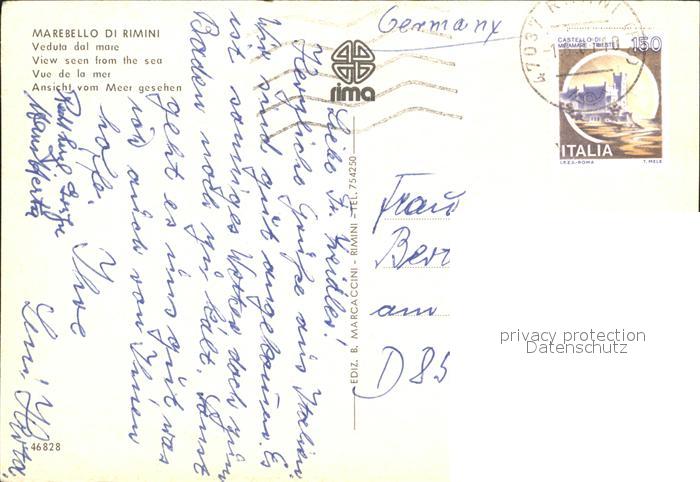 MAREBELLO DI RIMINI
Veduta dal mare
View seen from the sea
Vue de la mer
Ansicht vom Meer gesehen
rima
Germany
CASTELLO DI
MIRAMARE - TRIESTE
150
ITALIA
I.P.Z.S. - ROMA
T. MELE
Liebe Fr.
Herzliche Grüße aus Italien
Wir sind gut angekommen. Es
ist sonniges Wetter doch zum
Baden noch zu kalt. Sonst
geht es uns gut was
ich auch von Ihnen
hoffe.
Ihre
EDIZ. B. MARCACCINI - RIMINI - TEL. 754250
Frau
am
D 85
46828
privacy protection
Datenschutz